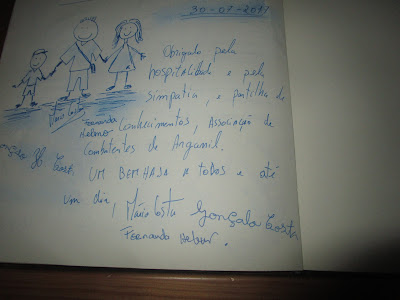 30-07-2011
Obrigado pela
hospitalidade e pela
simpatia, e partilha de
conhecimentos, Associação de
Combatentes de Arganil.
UM BEM HAJA a TODOS e até
um dia, Mário Costa Gonçalo Costa
Fernanda
Mário Costa
Fernanda